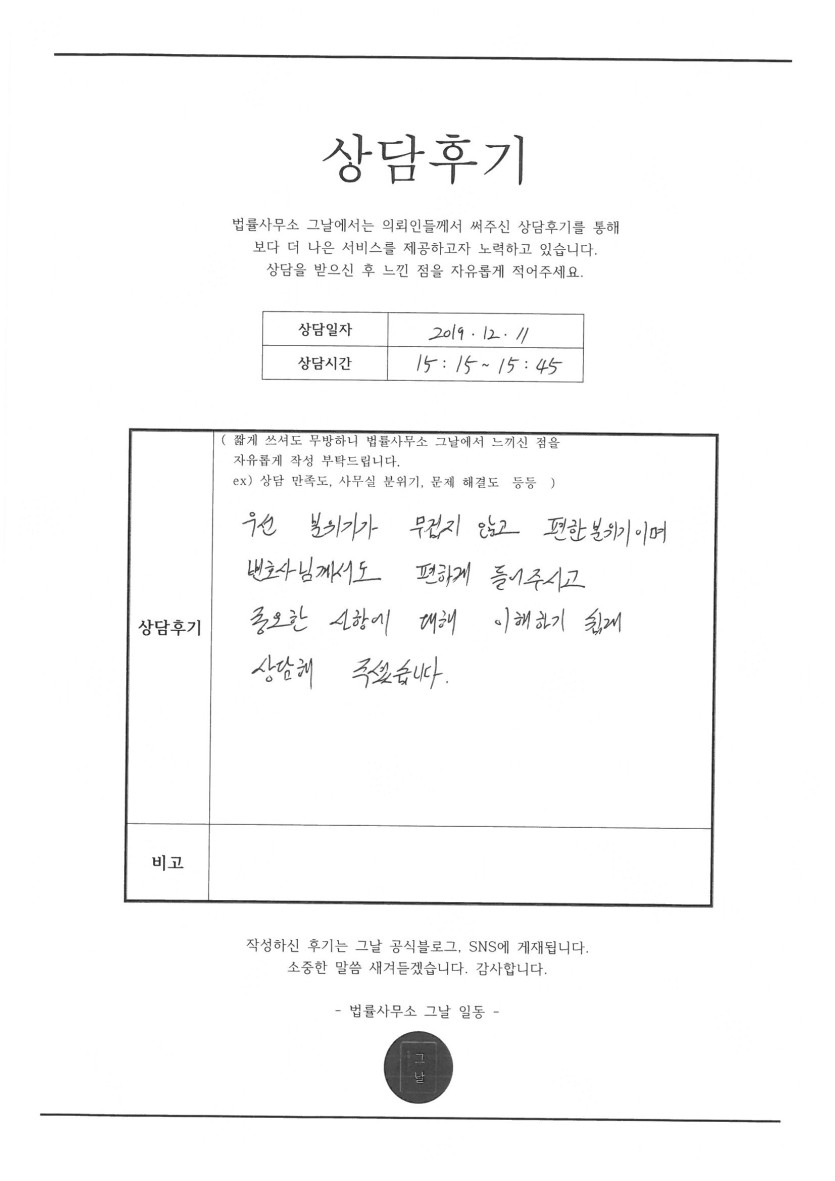 상담후기
법률사무소 그날에서는 의뢰인들께서 써주신 상담후기를 통해
보다 더 나은 서비스를 제공하고자 노력하고 있습니다.
상담을 받으신 후 느낀 점을 자유롭게 적어주세요.
상담일자 2019 . 12 . 11
상담시간 15 : 15 ~ 15 : 45
( 짧게 쓰셔도 무방하니 법률사무소 그날에서 느끼신 점을
자유롭게 작성 부탁드립니다.
ex) 상담 만족도, 사무실 분위기, 문제 해결도 등등 )
우선 분위기가 무겁지 않고 편한분위기이며
변호사님께서도 편하게 들어주시고
상담후기
중요한 사항에 대해 이해하기 쉽게
상담해 주셨습니다.
비고
작성하신 후기는 그날 공식블로그, SNS에 게재됩니다.
소중한 말씀 새겨듣겠습니다. 감사합니다.
- 법률사무소 그날 일동 -
그
날